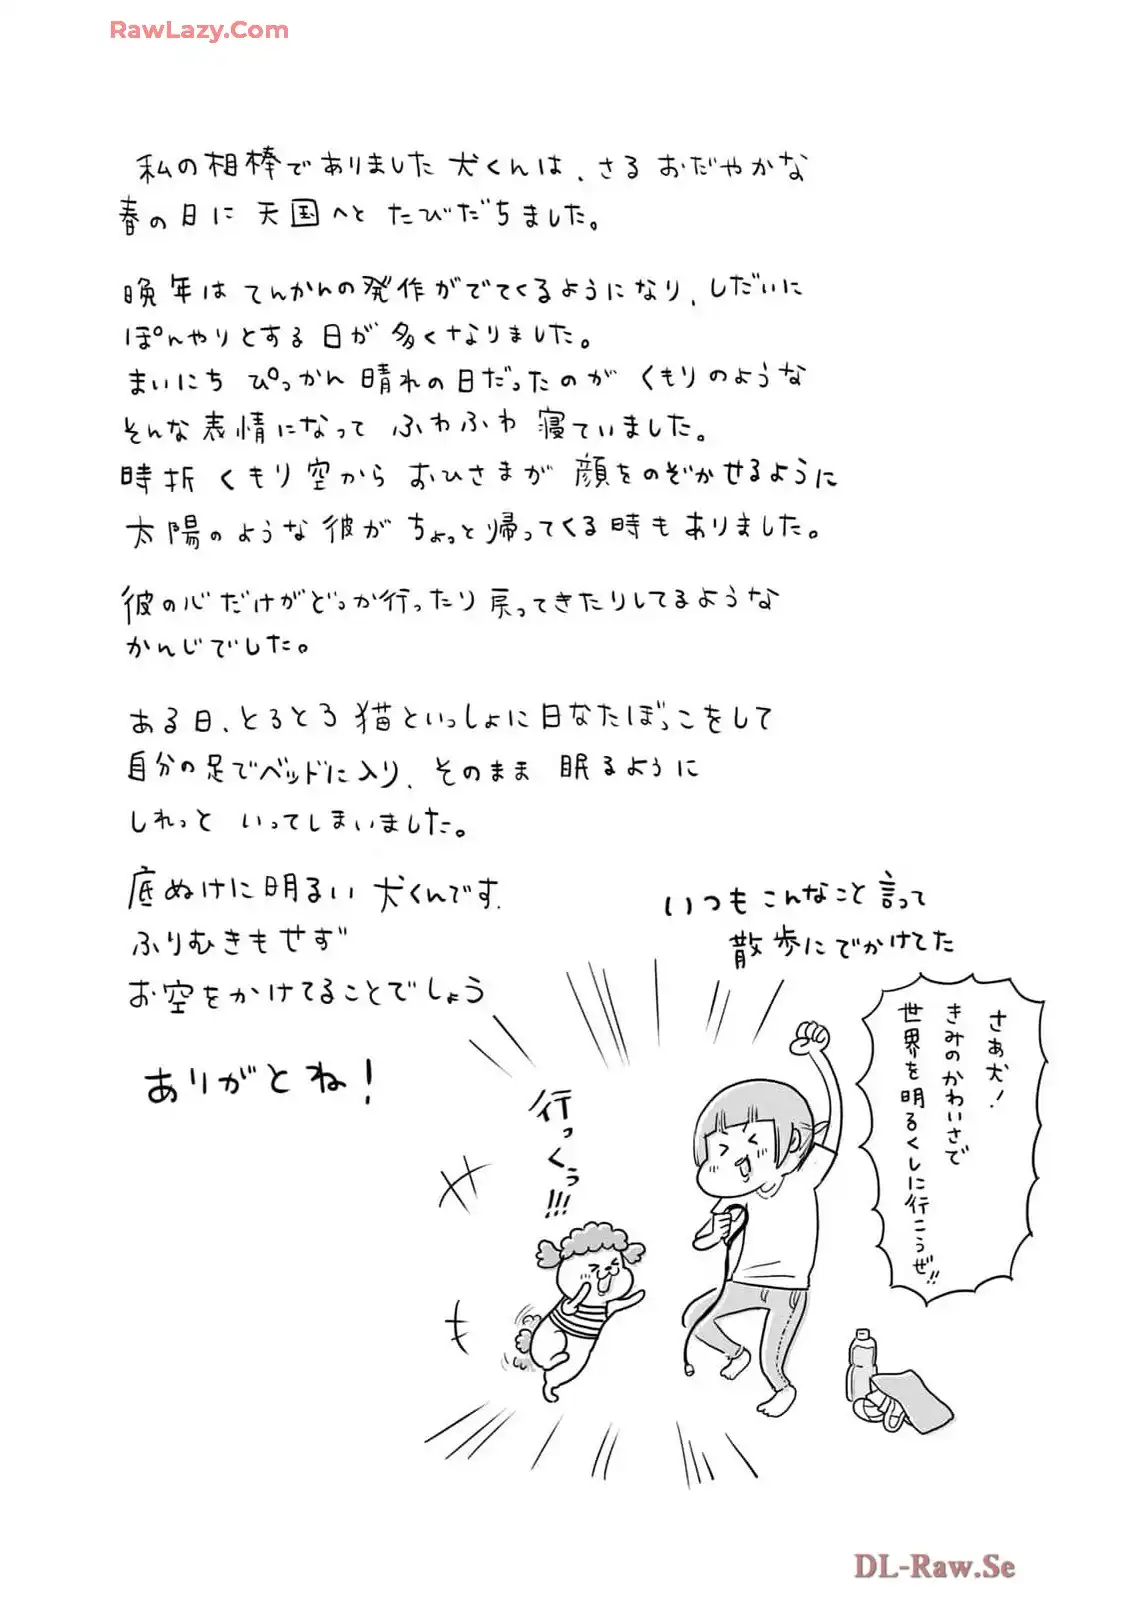 RawLazy.Com
私の相棒でありました犬くんは、さる おだやかな
春の日に 天国へと たびだちました。
晩年は てんかんの発作がでてくるようになり、しだいに
ぼんやりとする日が 多くなりました。
まいにち ぴっかん 晴れの日だったのが くもりのような
そんな表情になって ふわふわ 寝ていました。
時折 くもり空から おひさまが 顔をのぞかせるように
太陽のような彼が ちょっと帰ってくる時もありました。
彼の心だけがどっか行ったり戻ってきたりしてるような
かんじでした。
ある日、とろとろ 猫といっしょに日なたぼっこをして
自分の足でベッドに入り、そのまま 眠るように
しれっと いってしまいました。
底ぬけに明るい 犬くんです。
ふりむきもせず
お空をかけてることでしょう
ありがとね!
いつもこんなこと言って
散歩にでかけてた
さあ犬!
きみのかわいさで
世界を明るくしに行こうぜ!!
行っくぅ!!!
DL-Raw.Se